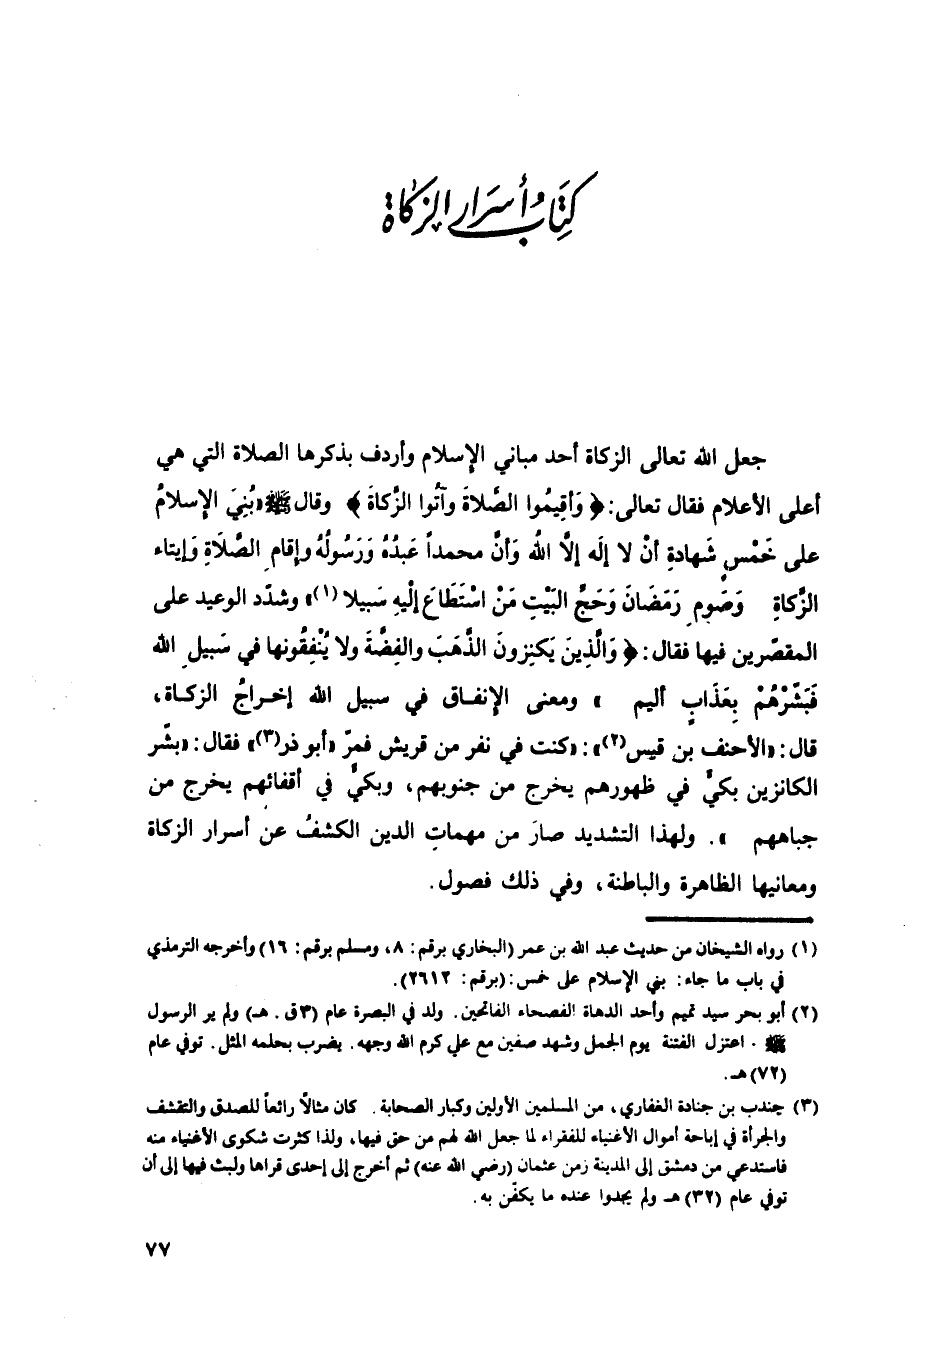 كِتَابُ أَسْرَارِ الزكَاة
جعل الله تعالى الزكاة أحد مباني الإسلام وأردف بذكرها الصلاة التي هي
أعلى الأعلام فقال تعالى: ﴿ وَأَقِيمُوا الصَّلاةَ وآتُوا الزَّكاةَ ﴾ وقال ﷺ «بُنِيَ الإسلامُ
على خَمْسٍ شَهادةِ أنْ لا إلَه إلَّا اللهُ وَأنَّ محمداً عَبدُهُ وَرَسُولُهُ وإقامِ الصَّلاةِ وَإيتاء
الزَّكاةِ وَصَومِ رَمَضَانَ وَحَجِّ البَيْتِ مَنْ اسْتَطَاعَ إلَيْهِ سَبيلا (١)» وشدّد الوعيد على
المقصّرين فيها فقال: ﴿ وَالَّذِينَ يَكنِزونَ الذَّهَبَ والفِضَّةَ ولا يُنْفِقُونها في سَبيلِ الله
فَبَشِّرْهُمْ بِعَذَابٍ أليم » ومعنى الإنفـاق في سبيل الله إخـراجُ الزكـاة،
قال: «الأحنف بن قيس(٢)»: «كنت في نفر من قريش فمرّ «أبو ذر(٣)» فقال: «بشّر
الكانزين بكيٍّ في ظهورهم يخرج من جنوبهم، وبكيٍّ في أقفائهم يخرج من
جباههم ». ولهذا التشديد صارَ من مهماتِ الدين الكشفُ عن أسرار الزكاة
ومعانيها الظاهرة والباطنة، وفي ذلك فصول.
(١) رواه الشيخان من حديث عبد الله بن عمر (البخاري برقم: ٨، ومسلم برقم: ١٦) وأخرجه الترمذي
في باب ما جاء: بني الإسلام على خمس: (برقم: ٢٦١٢).
(٢) أبو بحر سيد تميم وأحد الدهاة الفصحاء الفاتحين. ولد في البصرة عام (٣ق. هـ) ولم ير الرسول
ﷺ . اعتزل الفتنة يوم الجمل وشهد صفين مع علي كرم الله وجهه. يضرب بحلمه المثل. توفي عام
(٧٢) هـ.
(٣) جندب بن جنادة الغفاري، من المسلمين الأولين وكبار الصحابة. كان مثالاً رائعاً للصدق والتقشف
والجرأة في إباحة أموال الأغنياء للفقراء لما جعل الله لهم من حق فيها، ولذا كثرت شكوى الأغنياء منه
فاستدعي من دمشق إلى المدينة زمن عثمان (رضي الله عنه) ثم أخرج إلى إحدى قراها ولبث فيها إلى أن
توفي عام (٣٢) هـ ولم يجدوا عنده ما يكفّن به.
٧٧